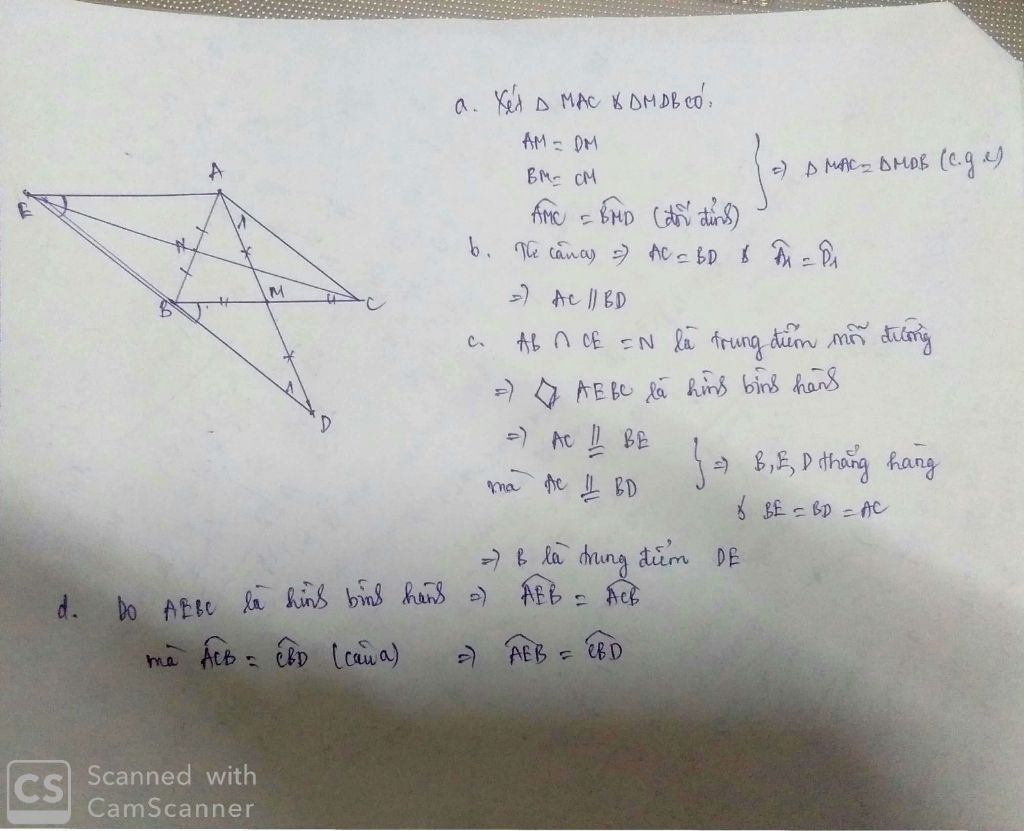 a. Xét Δ MAC & ΔMDB có:
AM = DM
BM = CM
AMC = BMD (đối đỉnh)
} => Δ MAC = ΔMDB (c.g.c)
b. Từ câu a) => AC = BD & Â1 = D̂1
=> AC // BD
c. AB ∩ CE = N là trung điểm mỗi đường
=> ▱ AEBC là hình bình hành
=> AC // BE
mà AC // BD
} => B, E, D thẳng hàng
& BE = BD = AC
=> B là trung điểm DE
d. Do AEBC là hình bình hành => AEB = ACB
mà ACB = CBD (câu a) => AEB = CBD
A
E
1
N
B
M
C
1
D
CS Scanned with
CamScanner